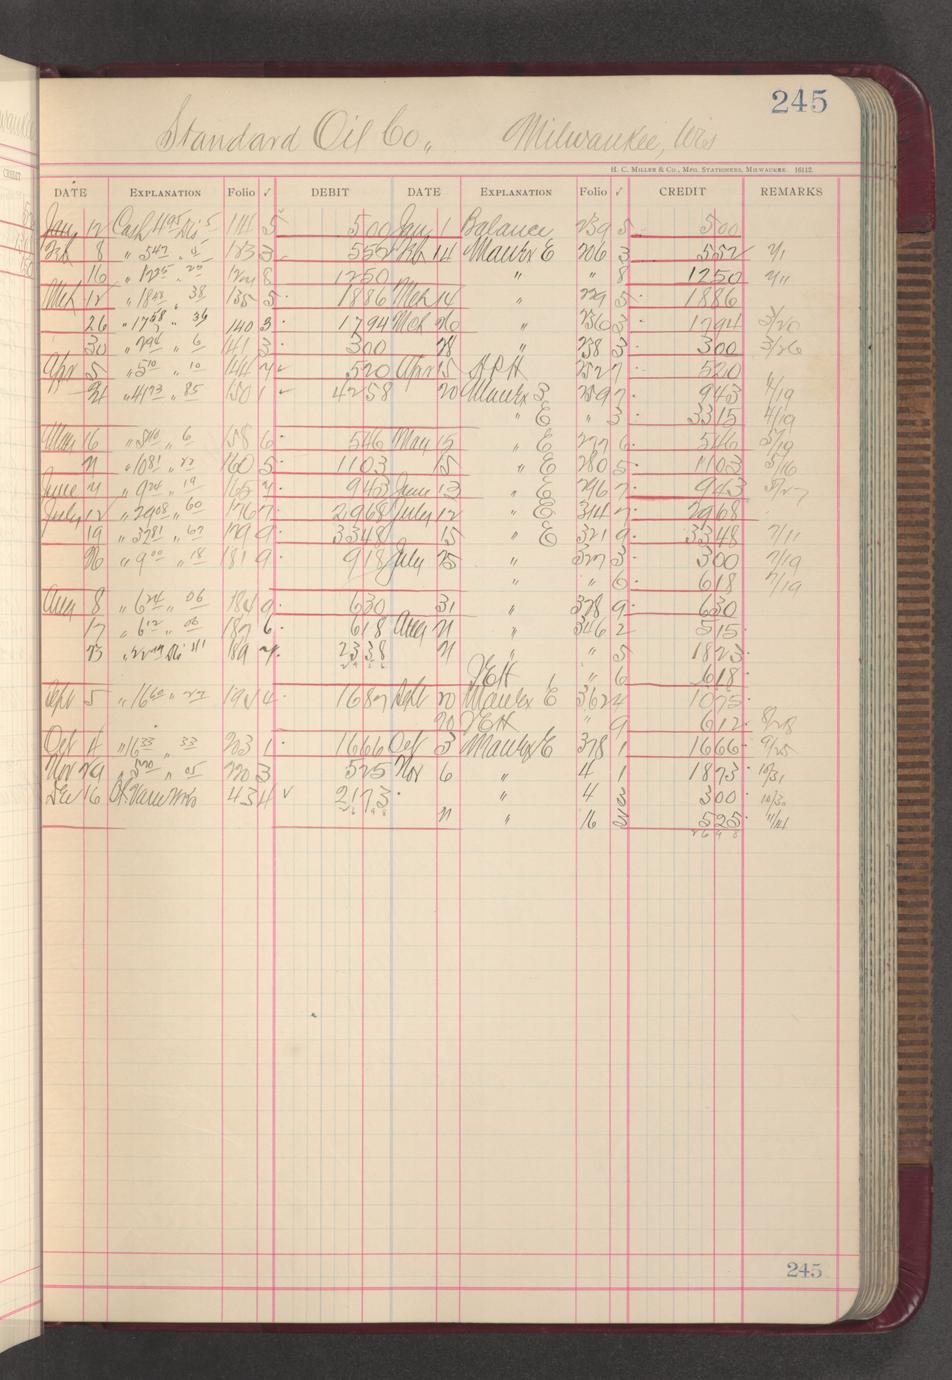 245
Standard Oil Co., Milwaukee, Wis
H. C. Miller & Co., Mfg. Stationers, Milwaukee 16112.
DATE EXPLANATION Folio ✓ DEBIT DATE EXPLANATION Folio ✓ CREDIT REMARKS
Jany 12 Cash 495 Dis 5 114 5 500 Jany 1 Balance 239 5 500
Feb 8 " 547 " 5 123 3 552 Feb 14 206 3 552 2/1
16 " 1225 " 25 8 1250 " " 8 1250 2/11
Mch 12 " 1848 " 38 135 5 1886 Mch 14 " 229 5 1886
26 " 1758 " 36 140 3 1794 Mch 26 " 236 3 1794 3/20
30 " 294 " 6 141 3 300 28 " 238 3 300 3/26
Apr 5 " 510 " 10 144 7 520 Apr 15 252 7 520
" 4173 " 85 150 1 4258 20 259 7 943 4/19
" E " 3 3315 4/19
May 6 " 540 " 6 158 6 546 May 15 " E 277 6 546 5/9
21 " 1081 " 22 160 5 1103 15 " E 280 5 1103 5/16
June 4 " 924 " 19 165 7 943 June 13 " E 296 7 943 5/27
July 12 " 2908 " 60 176 7 2968 July 12 " E 314 7 2968
19 " 3281 " 67 179 9 3348 15 " E 321 9 3348 7/11
26 " 900 " 18 181 9 918 July 25 " 327 3 300 7/19
" " 6 618 7/19
Aug 8 " 624 " 06 184 9 630 31 " 328 9 630
17 " 612 " 06 187 6 618 Aug 21 " 346 2 515
23 189 4 2338 21 " " 5 1823
" 6 618
Sept 5 " 194 4 1687 Sept 20 362 4 1075
20 " 9 612 8/28
Oct 4 " 1633 " 33 203 1 1666 Oct 3 378 1 1666 9/25
Nov 29 " 520 " 05 220 3 525 Nov 6 " 4 1 1873 10/31
Dec 16 43 4 ✓ 2173 " 4 3 300 10/30
21 " 16 3 525 11/14
2698
245